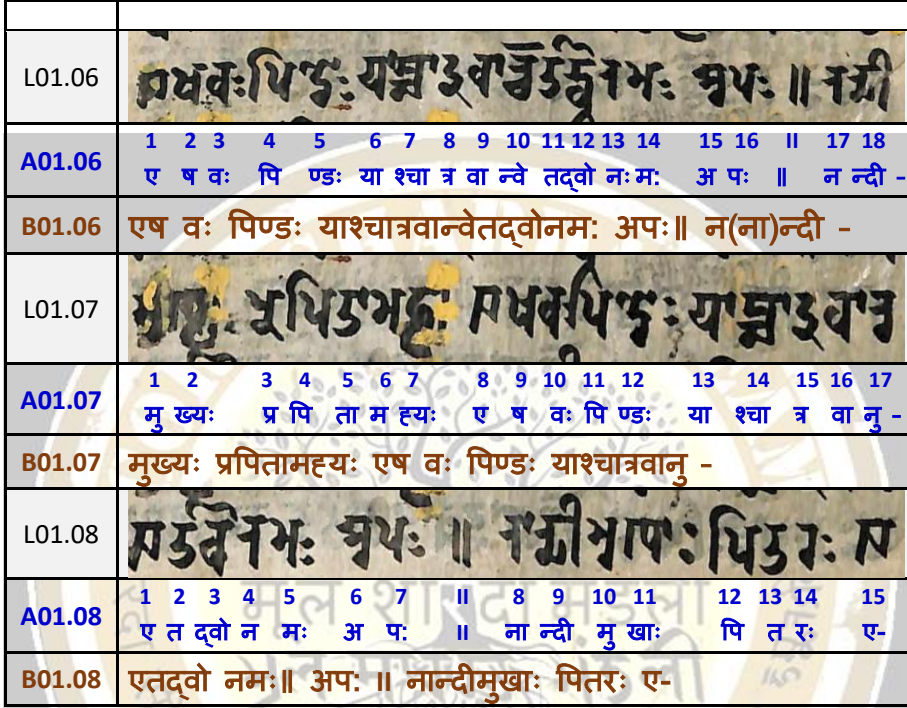 L01.06
1 2 3 4 5 6 7 8 9 10 11 12 13 14 15 16 II 17 18
A01.06 ए ष वः पि ण्डः या श्चा त्र वा न्वे तद्वो नःम: अ पः ॥ न न्दी -
B01.06 एष वः पिण्डः याश्चात्रवान्वेतद्वोनम: अपः॥ न(ना)न्दी -
L01.07
1 2 3 4 5 6 7 8 9 10 11 12 13 14 15 16 17
A01.07 मु ख्यः प्र पि ता म ह्यः ए ष वः पि ण्डः या श्चा त्र वा नु -
B01.07 मुख्यः प्रपितामह्यः एष वः पिण्डः याश्चात्रवानु -
L01.08
1 2 3 4 5 6 7 II 8 9 10 11 12 13 14 15
A01.08 ए त द्वो न मः अ प: ॥ ना न्दी मु खाः पि त रः ए-
B01.08 एतद्वो नमः॥ अप: ॥ नान्दीमुखाः पितरः ए-